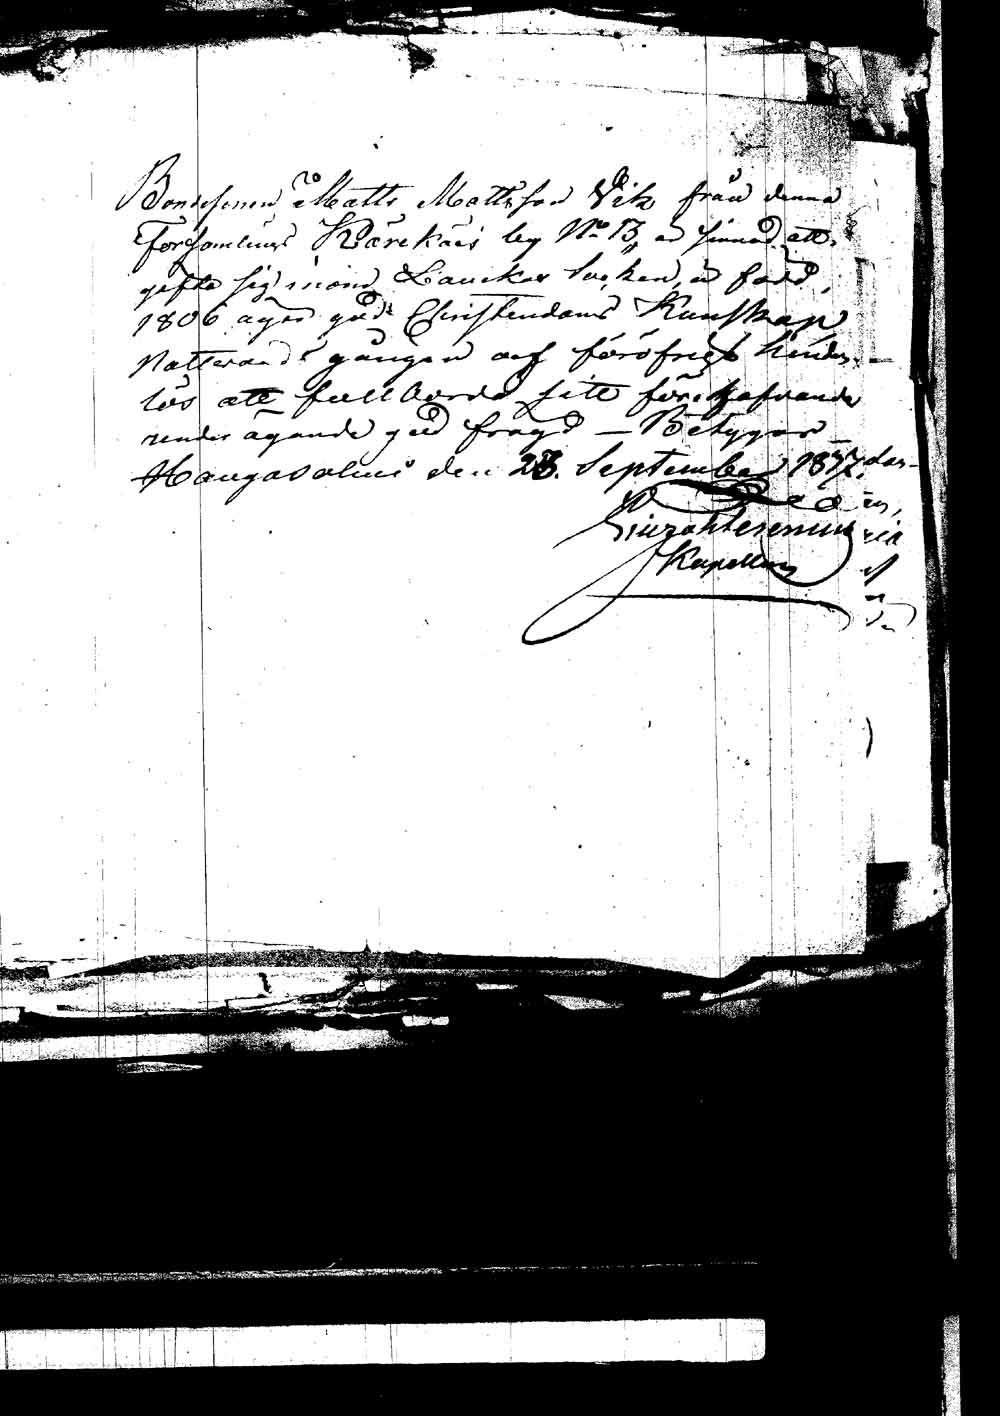 Bondesonen Matts Mattsson Vik från denna
Församlings Kärekäis by No 13, är sinnad att
gifta sig inom Laukas Socken, är född,
1806 äger god Christendoms Kunskap
Nattvards gången och föröfrigt hinder-
lös att fullborda sitt förehafvande
under ägande god frägd — Betygar
Haugasalmi den 23. September 1837.
Kapellan